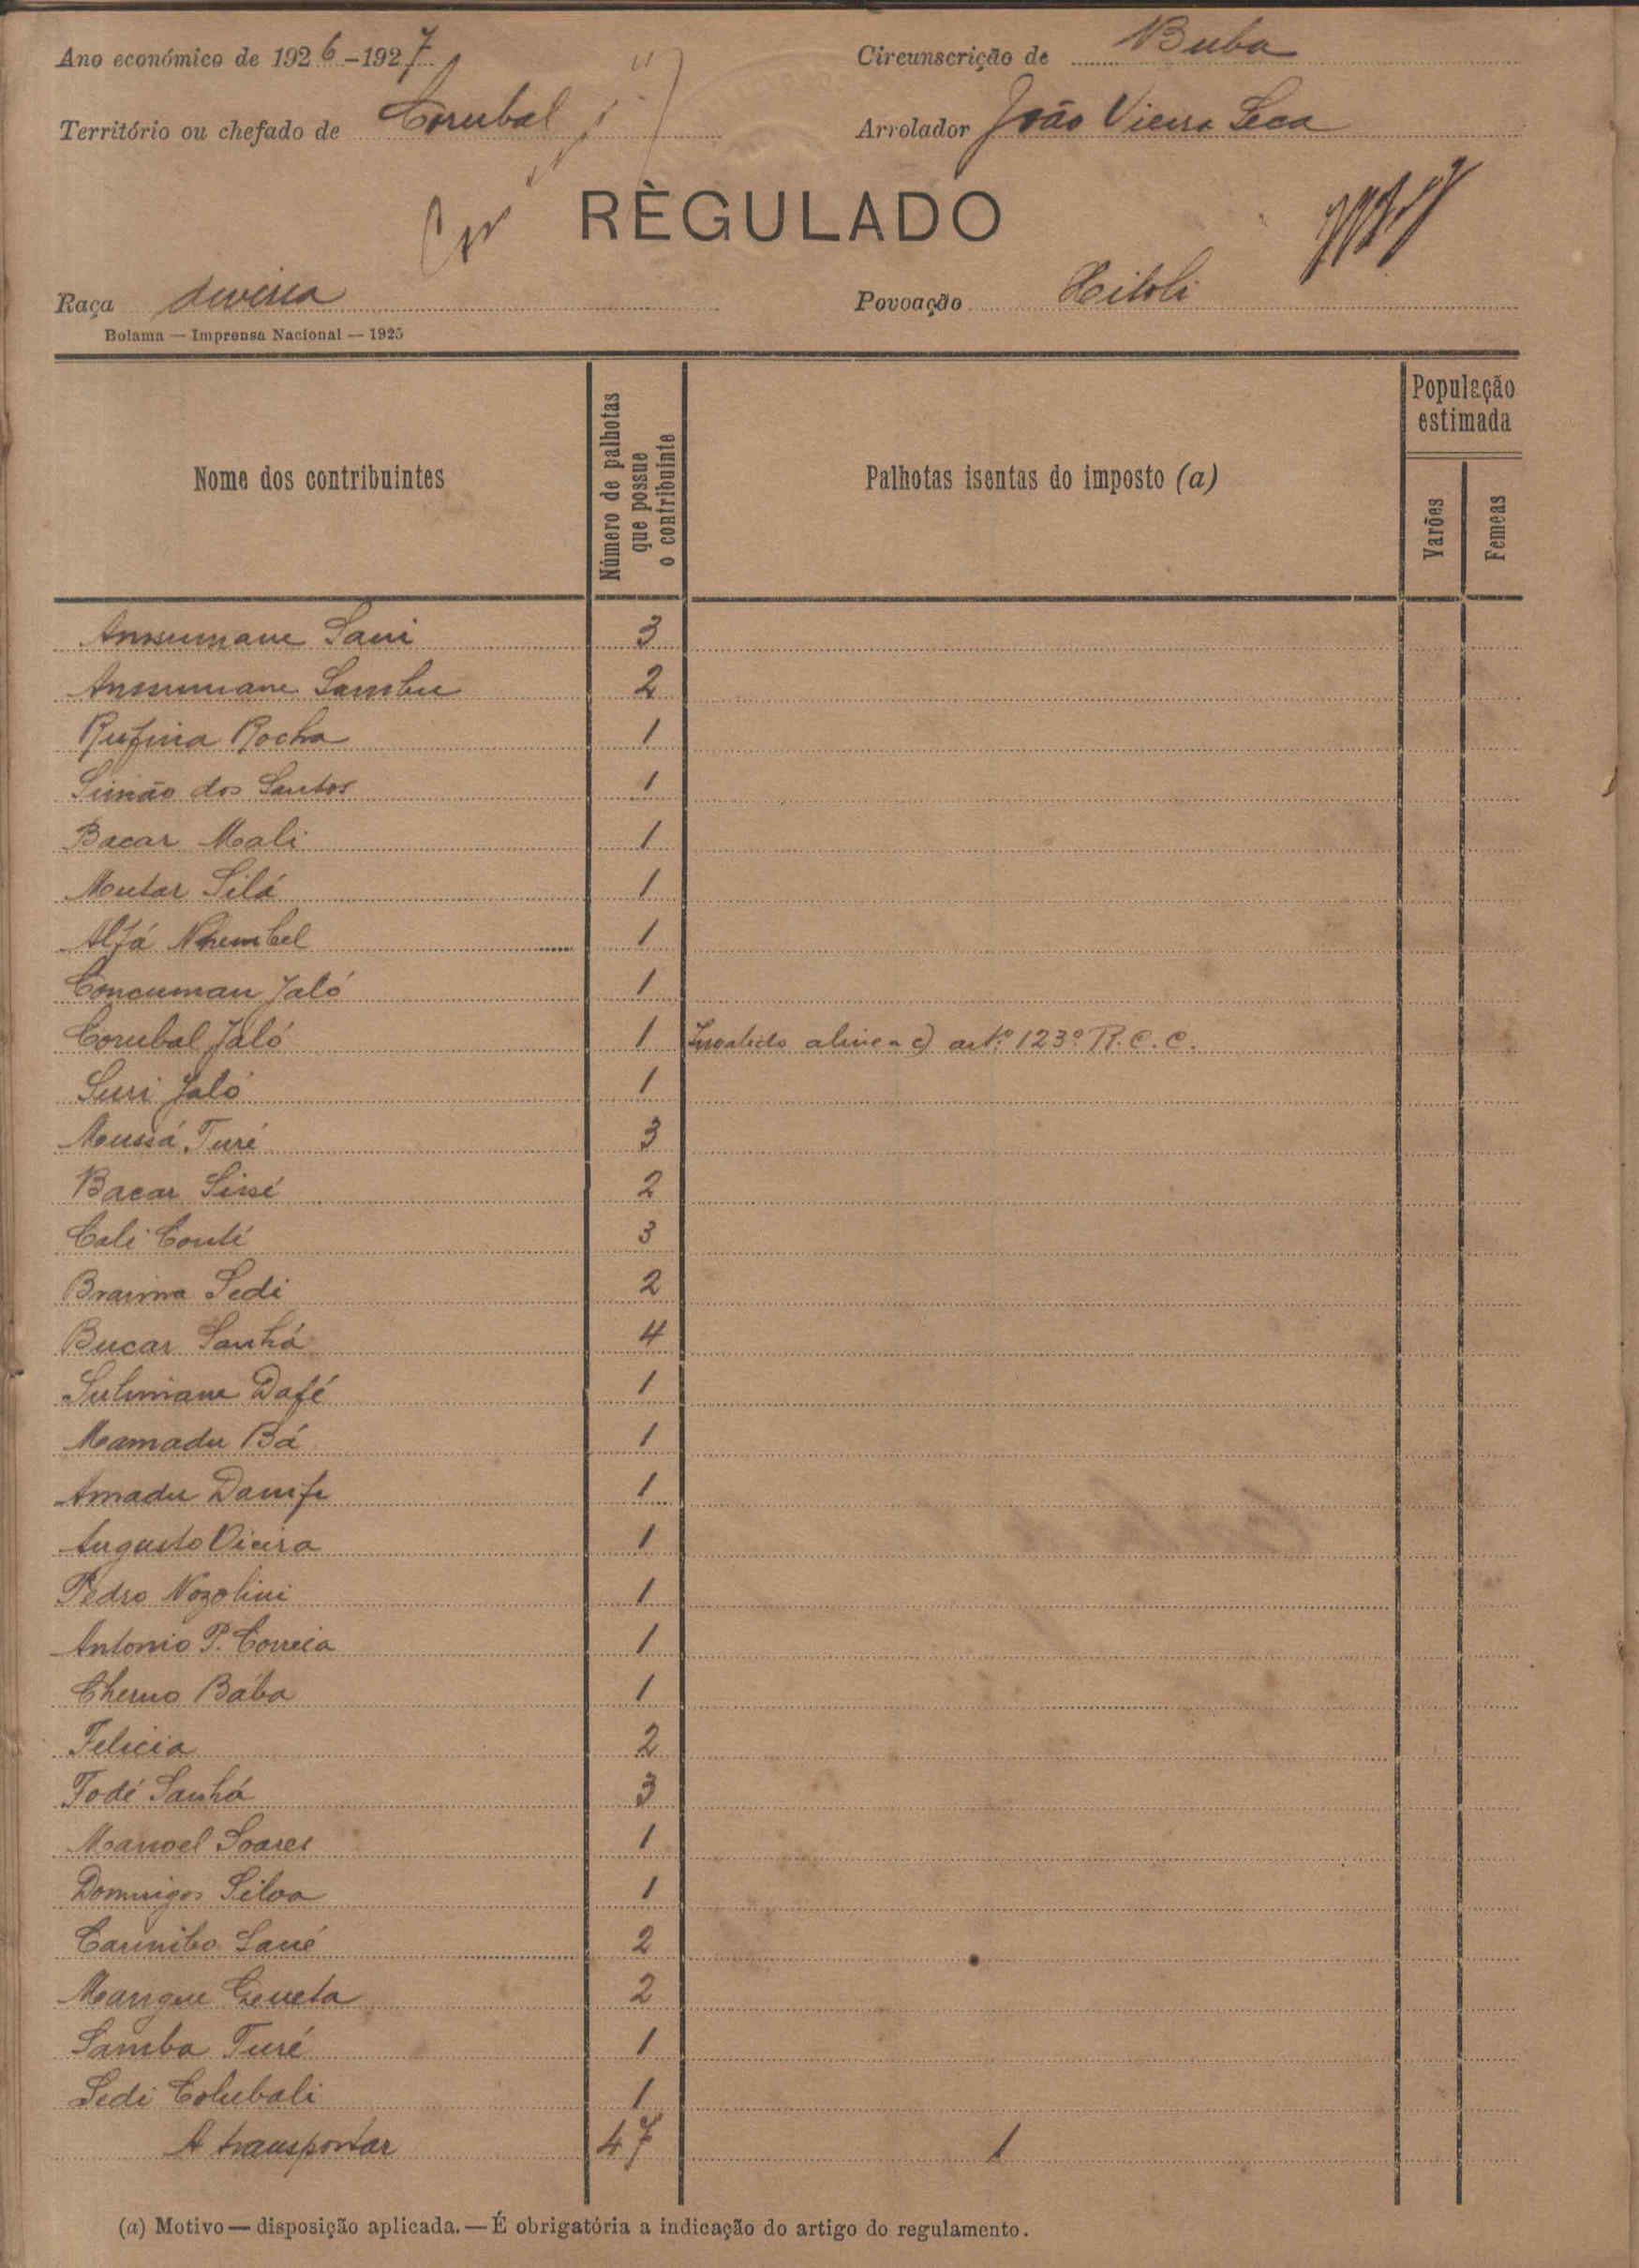 Ano económico de 1926-1927
Circunscrição de Buba
Território ou chefado de Corubal
Arrolador João Vieira Seca
RÈGULADO
Raça diversa
Povoação Xitoli
Bolama — Imprensa Nacional — 1925
Nome dos contribuintes
Número de palhotas que possue o contribuinte
Palhotas isentas do imposto (a)
População estimada
Varões
Femeas
Ansumane Sani 3
Ansumane Sambu 2
Rufina Rocha 1
Simão dos Santos 1
Bacar Mali 1
Mutar Silá 1
Alfá Nhembel 1
Concuman Jaló 1
Corubal Jaló 1 Invalido alinea c) artº 123º R.C.C.
Suri Jaló 1
Mussá Turé 3
Bacar Sissé 2
Cali Conté 3
Braima Sedi 2
Bucar Sanhá 4
Sulimane Dafé 1
Mamadu Bá 1
Amadu Danife 1
Augusto Vieira 1
Pedro Nozolini 1
Antonio P. Correia 1
Cherno Bába 1
Felicia 2
Fodé Sanhá 3
Manoel Soares 1
Domingos Silva 1
Carimbo Sané 2
Mangue 2
Samba Turé 1
Sedi Colubali 1
A transportar 47 1
(a) Motivo — disposição aplicada. — É obrigatória a indicação do artigo do regulamento.